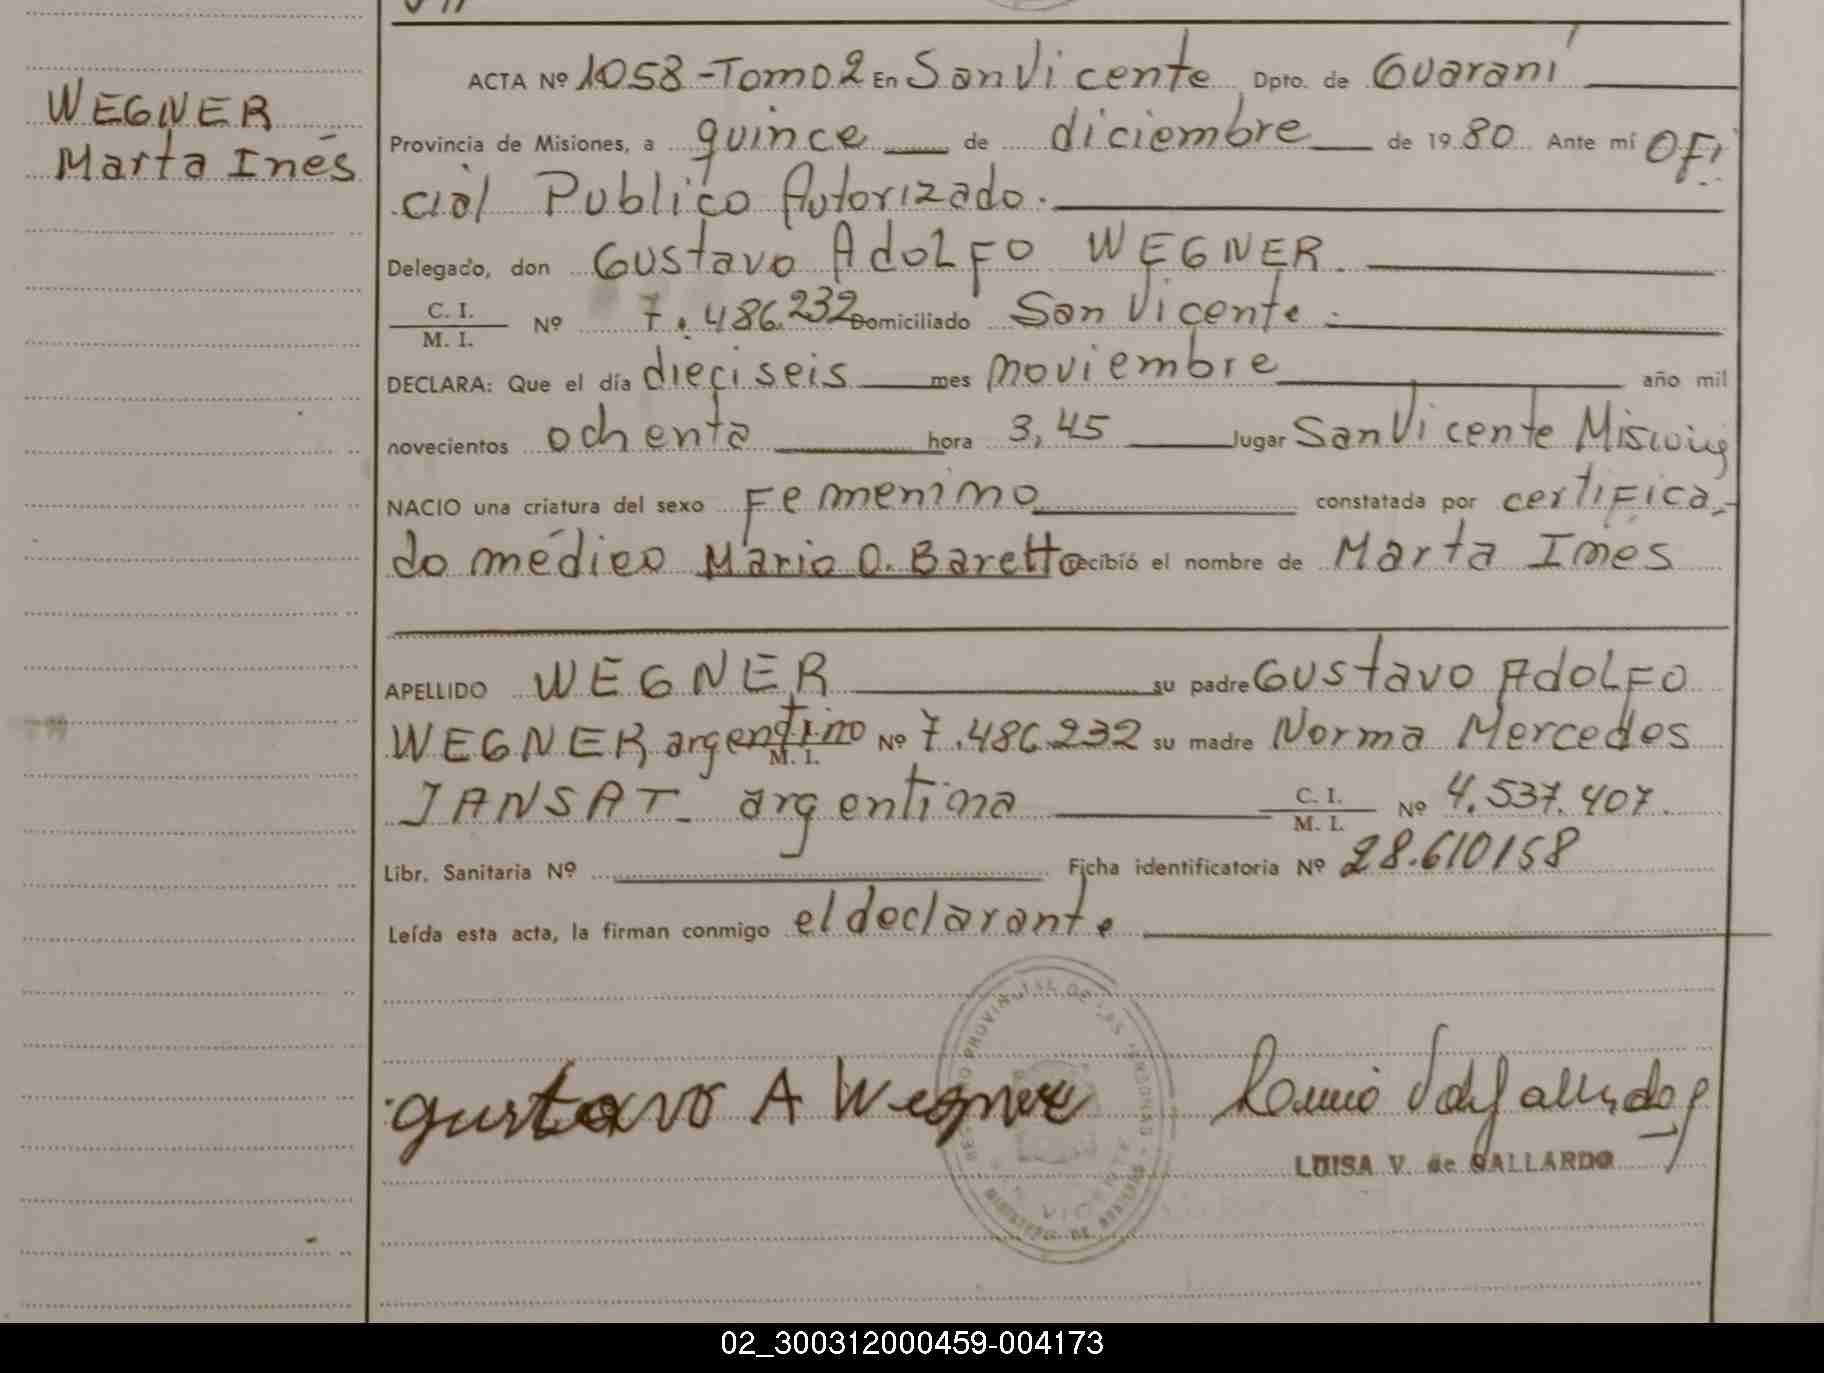 WEGNER
Marta Inés
ACTA Nº 1058 - Tomo 2 En San Vicente Dpto. de Guaraní
Provincia de Misiones, a quince de diciembre de 1980 Ante mí Ofi
cial Publico Autorizado.
Delegado, don Gustavo Adolfo WEGNER.
C. I.
M. I. Nº 7.486.232 Domiciliado San Vicente.
DECLARA: Que el día dieciseis mes noviembre año mil
novecientos ochenta hora 3,45 lugar San Vicente Misiones
NACIO una criatura del sexo Femenino constatada por certifica
do médico Mario O. Baretto recibió el nombre de Marta Ines
APELLIDO WEGNER su padre Gustavo Adolfo
WEGNER argentino M. I. Nº 7.486.232 su madre Norma Mercedes
JANSAT - argentina C. I. M. I. Nº 4.537.407.
Libr. Sanitaria Nº Ficha identificatoria Nº 28.610158
Leída esta acta, la firman conmigo el declarante
gustavo A Wegner
LUISA V. de GALLARDO
VICENTE
02_300312000459-004173